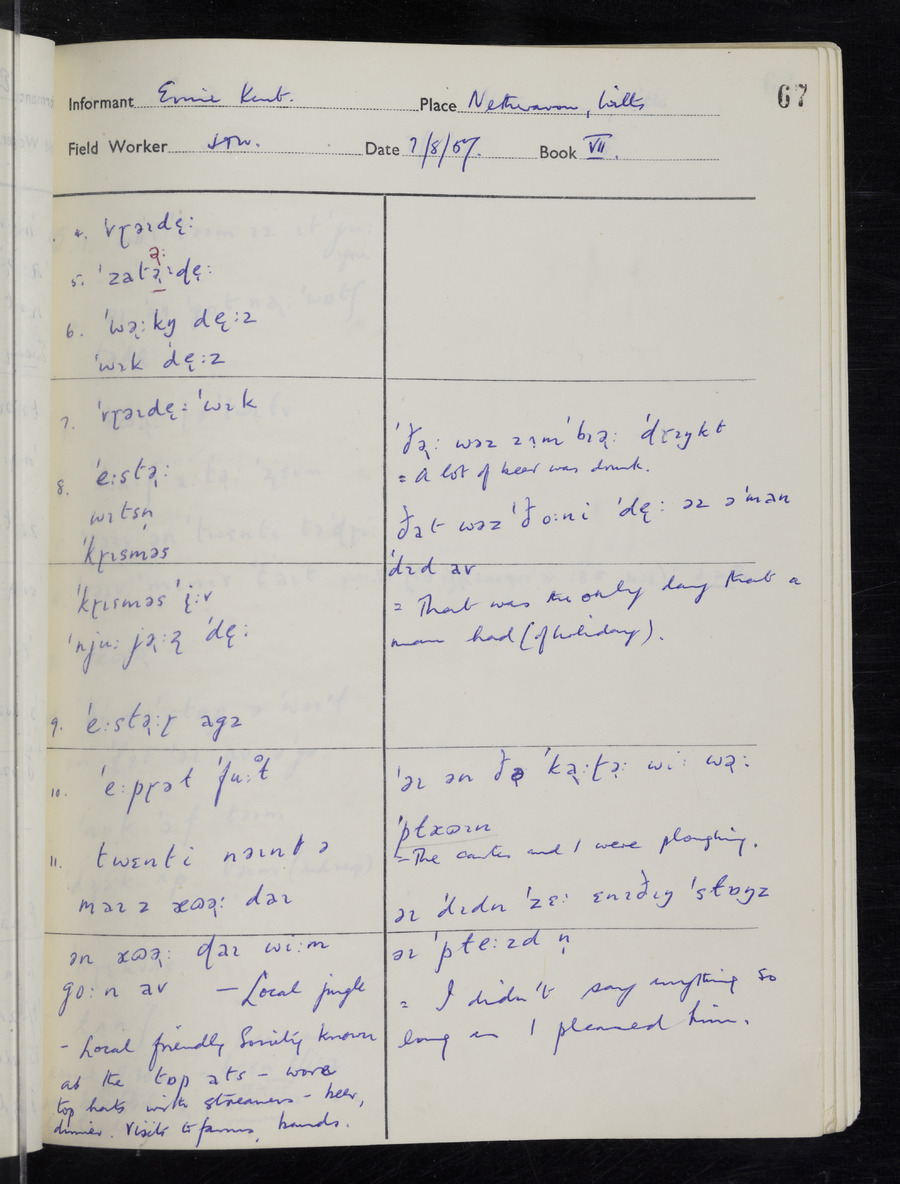 67
Informant Ernie Kent. Place Netheravon, Wilts
Field Worker Date 7/8/57. Book VII.
4. 'vɽəɪdę:
5. 'zatə̣:dę: ə̣:
6. 'wə̣:kŋ dę:z
'wɪk 'dę:z
7. 'vɽəɪdę: 'wɪk
8. 'e:stə̣:
wɪtsn̩
'kɽɪsməs
'kɽɪsməs 'i̜:v
'nju: jə̣:ɽ 'dę:
9. 'e:stə̣:ɽ agz
10. 'e:pɽət 'fu:t
11. twenti nəɪnt ə
maɪ z æʊə̣: daɪ
ən æʊə̣: daɪ wi:m
go:n av — Local jingle
- Local friendly Society known
as the tɒp ats – wore
top hats with streamers – beer,
dinner. Visits to farms, bands.
'ðə̣: wəz zʌm 'bɪə̣: 'dɽɪŋkt
= A lot of beer was drunk.
ðat wəz 'ðo:ni 'dę: əz ə 'man
'dɪd av
= That was the only day that a
man had (of holiday).
'əɪ ən ðə 'kạ:tə̣: wi: wə̣:
'plæʊɪn
= The carter and I were ploughing.
əɪ 'dɪdn 'ze: enɪðɪŋ 'stɒŋz
əɪ 'ple:zd n̩
= I didn't say anything so
long as I pleased him.